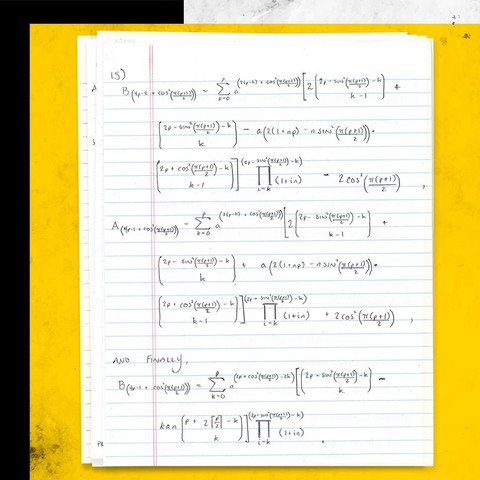 15)
B_(4p-3 + cos²(π(p+1)/2)) = Σ_{k=0}^{p} a^(2(p-k) + cos²(π(p+1)/2)) [2 (2p - sin²(π(p+1)/2) - k \ k-1) +
(2p - sin²(π(p+1)/2) - k \ k) - a(2(1+np) - n sin²(π(p+1)/2)) •
(2p + cos²(π(p+1)/2) - k \ k-1)] ∏_{i=k}^{(2p - sin²(π(p+1)/2) - k)} (1+in) - 2cos²(π(p+1)/2) ,
A_(4p-1 + cos²(π(p+1)/2)) = Σ_{k=0}^{p} a^(2(p-k) + cos²(π(p+1)/2)) [2 (2p - sin²(π(p+1)/2) - k \ k-1) +
(2p - sin²(π(p+1)/2) - k \ k) + a(2(1+np) - n sin²(π(p+1)/2)) •
(2p + cos²(π(p+1)/2) - k \ k-1)] ∏_{i=k}^{(2p - sin²(π(p+1)/2) - k)} (1+in) + 2cos²(π(p+1)/2) ,
AND FINALLY,
B_(4p-1 + cos²(π(p+1)/2)) = Σ_{k=0}^{p} a^(2p + cos²(π(p+1)/2) - 2k) [(2p + sin²(π(p+1)/2) - k \ k) -
kan (p + 2⌈p/2⌉ - k \ k)] ∏_{i=k}^{(2p - sin²(π(p+1)/2) - k)} (1+in) .